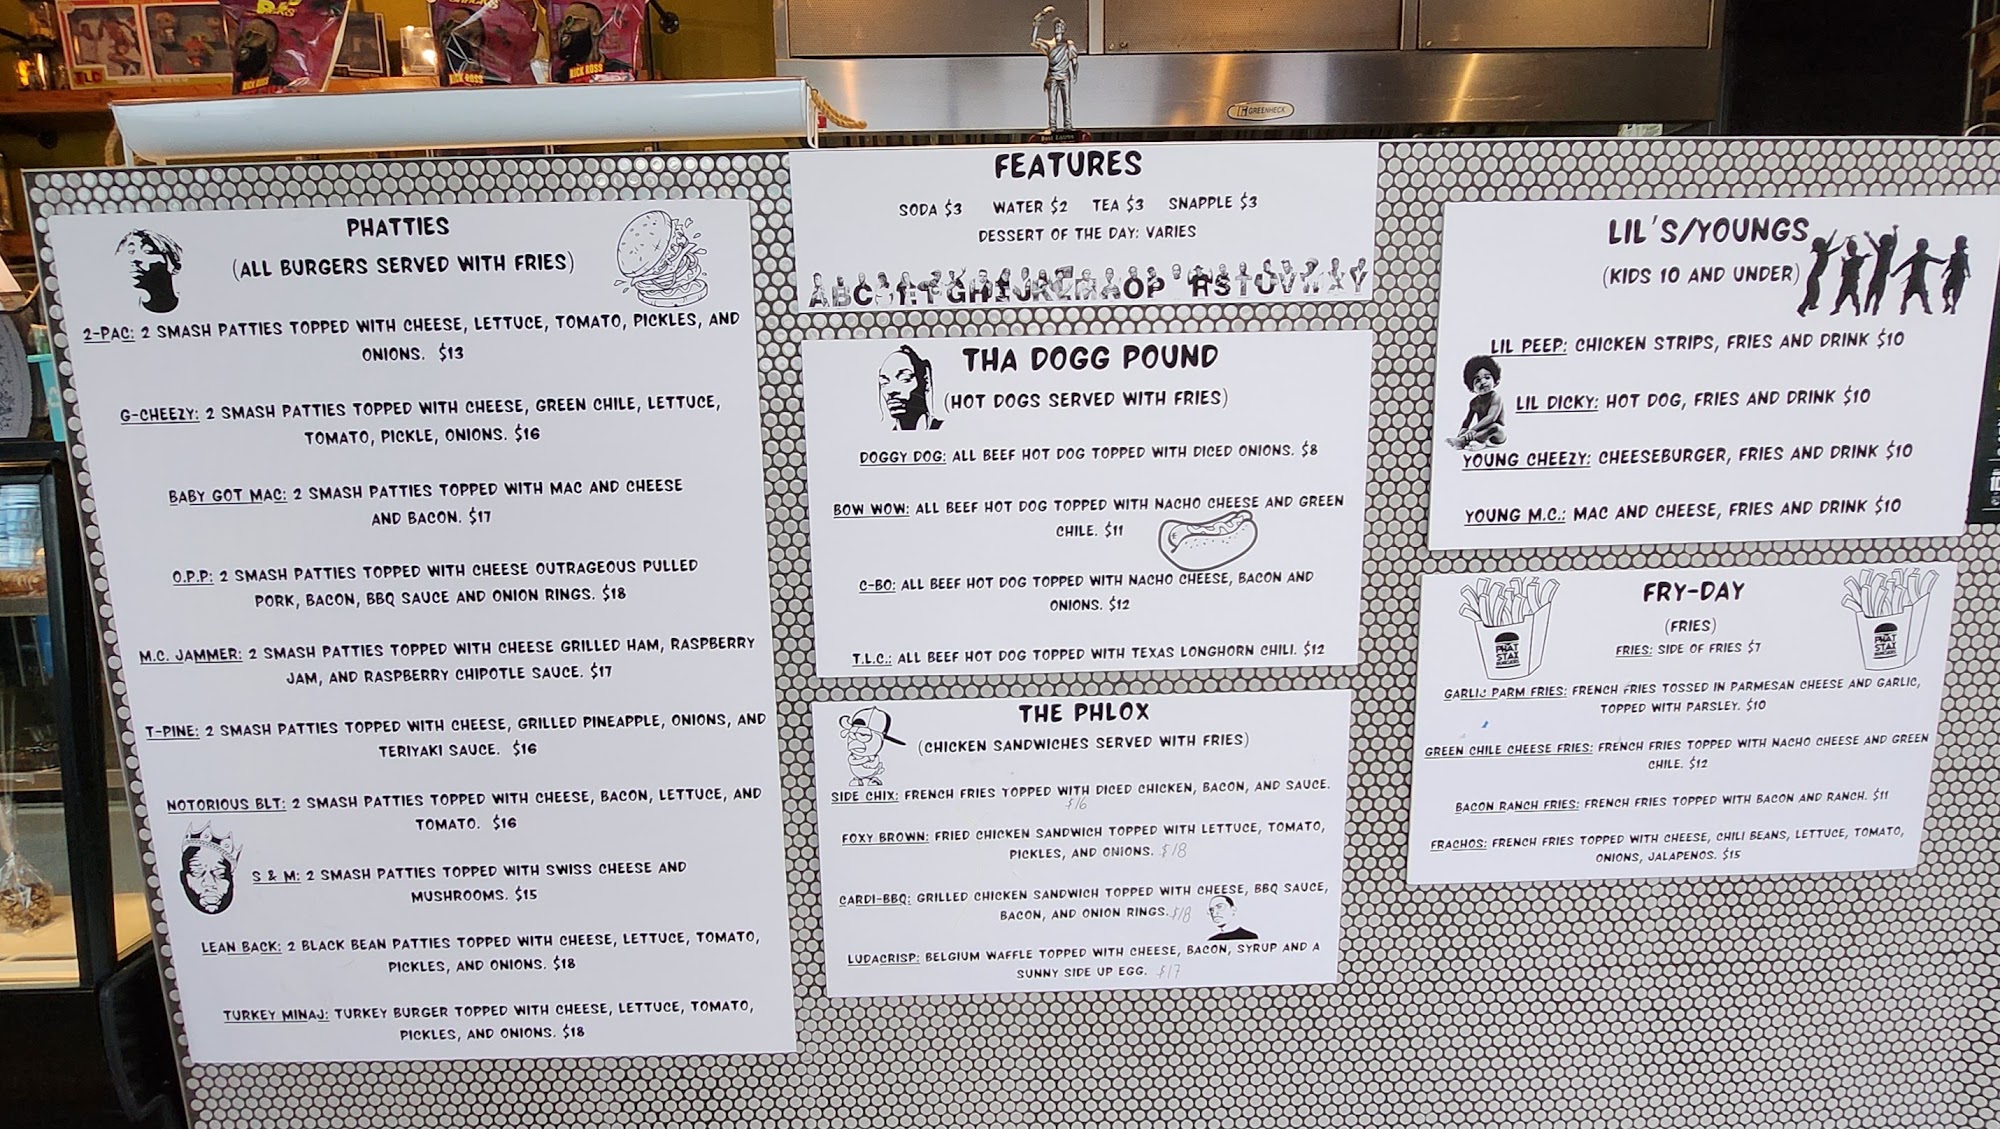 RICK ROSS
RICK ROSS
RICK ROSS
TLC
GREENHECK
PHATTIES
(ALL BURGERS SERVED WITH FRIES)
2-PAC: 2 SMASH PATTIES TOPPED WITH CHEESE, LETTUCE, TOMATO, PICKLES, AND
ONIONS. $13
G-CHEEZY: 2 SMASH PATTIES TOPPED WITH CHEESE, GREEN CHILE, LETTUCE,
TOMATO, PICKLE, ONIONS. $16
BABY GOT MAC: 2 SMASH PATTIES TOPPED WITH MAC AND CHEESE
AND BACON. $17
O.P.P: 2 SMASH PATTIES TOPPED WITH CHEESE OUTRAGEOUS PULLED
PORK, BACON, BBQ SAUCE AND ONION RINGS. $18
M.C. JAMMER: 2 SMASH PATTIES TOPPED WITH CHEESE GRILLED HAM, RASPBERRY
JAM, AND RASPBERRY CHIPOTLE SAUCE. $17
T-PINE: 2 SMASH PATTIES TOPPED WITH CHEESE, GRILLED PINEAPPLE, ONIONS, AND
TERIYAKI SAUCE. $16
NOTORIOUS BLT: 2 SMASH PATTIES TOPPED WITH CHEESE, BACON, LETTUCE, AND
TOMATO. $16
S & M: 2 SMASH PATTIES TOPPED WITH SWISS CHEESE AND
MUSHROOMS. $15
LEAN BACK: 2 BLACK BEAN PATTIES TOPPED WITH CHEESE, LETTUCE, TOMATO,
PICKLES, AND ONIONS. $18
TURKEY MINAJ: TURKEY BURGER TOPPED WITH CHEESE, LETTUCE, TOMATO,
PICKLES, AND ONIONS. $18
FEATURES
SODA $3 WATER $2 TEA $3 SNAPPLE $3
DESSERT OF THE DAY: VARIES
THA DOGG POUND
(HOT DOGS SERVED WITH FRIES)
DOGGY DOG: ALL BEEF HOT DOG TOPPED WITH DICED ONIONS. $8
BOW WOW: ALL BEEF HOT DOG TOPPED WITH NACHO CHEESE AND GREEN
CHILE. $11
C-BO: ALL BEEF HOT DOG TOPPED WITH NACHO CHEESE, BACON AND
ONIONS. $12
T.L.C.: ALL BEEF HOT DOG TOPPED WITH TEXAS LONGHORN CHILI. $12
THE PHLOX
(CHICKEN SANDWICHES SERVED WITH FRIES)
SIDE CHIX: FRENCH FRIES TOPPED WITH DICED CHICKEN, BACON, AND SAUCE.
$16
FOXY BROWN: FRIED CHICKEN SANDWICH TOPPED WITH LETTUCE, TOMATO,
PICKLES, AND ONIONS. $18
CARDI-BBQ: GRILLED CHICKEN SANDWICH TOPPED WITH CHEESE, BBQ SAUCE,
BACON, AND ONION RINGS. $18
LUDACRISP: BELGIUM WAFFLE TOPPED WITH CHEESE, BACON, SYRUP AND A
SUNNY SIDE UP EGG. $17
LIL'S/YOUNGS
(KIDS 10 AND UNDER)
LIL PEEP: CHICKEN STRIPS, FRIES AND DRINK $10
LIL DICKY: HOT DOG, FRIES AND DRINK $10
YOUNG CHEEZY: CHEESEBURGER, FRIES AND DRINK $10
YOUNG M.C.: MAC AND CHEESE, FRIES AND DRINK $10
FRY-DAY
(FRIES)
FRIES: SIDE OF FRIES $7
GARLIC PARM FRIES: FRENCH FRIES TOSSED IN PARMESAN CHEESE AND GARLIC,
TOPPED WITH PARSLEY. $10
GREEN CHILE CHEESE FRIES: FRENCH FRIES TOPPED WITH NACHO CHEESE AND GREEN
CHILE. $12
BACON RANCH FRIES: FRENCH FRIES TOPPED WITH BACON AND RANCH. $11
FRACHOS: FRENCH FRIES TOPPED WITH CHEESE, CHILI BEANS, LETTUCE, TOMATO,
ONIONS, JALAPENOS. $15
PHAT
STAX
PHAT
STAX